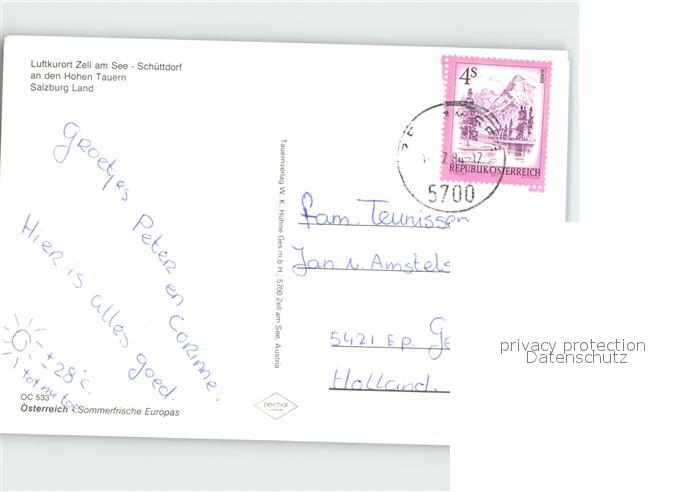 Luftkurort Zell am See - Schüttdorf
an den Hohen Tauern
Salzburg Land
Groetjes
Peter en Corinne.
Hier is alles goed.
+28°c.
tot nu toe
OC 533
Österreich - Sommerfrische Europas
Tauernverlag W. K. Huhne Ges.m.b.H., 5700 Zell am See, Austria
peichar
4S
REPUBLIK ÖSTERREICH
7.84-17
5700
fam. Teunissen
Jan v. Amstels
5421 EP. Ge
Holland.
privacy protection
Datenschutz